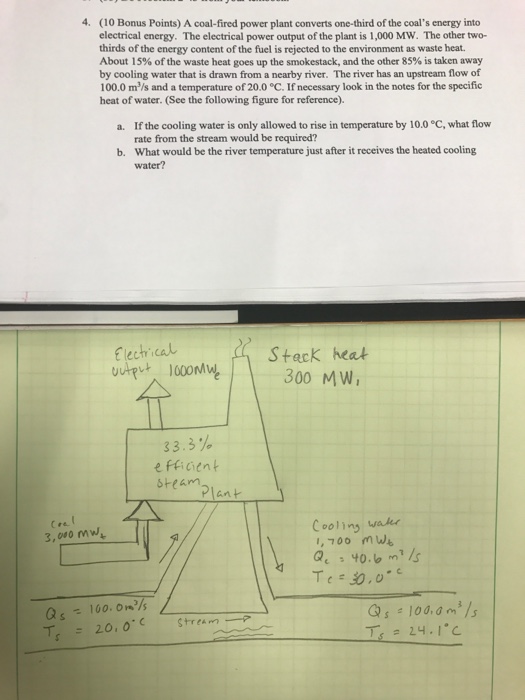 4. (10 Bonus Points) A coal-fired power plant converts one-third of the coal's energy into
electrical energy. The electrical power output of the plant is 1,000 MW. The other two-
thirds of the energy content of the fuel is rejected to the environment as waste heat.
About 15% of the waste heat goes up the smokestack, and the other 85% is taken away
by cooling water that is drawn from a nearby river. The river has an upstream flow of
100.0 m³/s and a temperature of 20.0 °C. If necessary look in the notes for the specific
heat of water. (See the following figure for reference).
a. If the cooling water is only allowed to rise in temperature by 10.0 °C, what flow
rate from the stream would be required?
b. What would be the river temperature just after it receives the heated cooling
water?
Electrical
output 1000MWe
Stack heat
300 MWt
33.3%
efficient
steam
Plant
Coal
3,000 MWt
Cooling water
1,700 MWt
Qc = 40.6 m³/s
Tc = 30.0°C
Qs = 100.0m³/s
Ts = 20.0°C
Stream
Qs = 100.0m³/s
Ts = 24.1°C